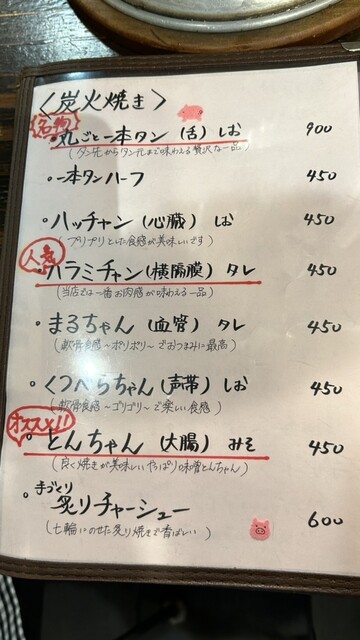 〈炭火焼き〉
名物
・丸ごと一本タン(舌)しお 900
(タン先からタン元まで味わえる贅沢な一品)
・一本タンハーフ 450
・ハッチャン(心臓)しお 450
(プリプリとした食感が美味しいです)
人気
・ハラミチャン(横隔膜)タレ 450
(当店では一番お肉感が味わえる一品)
・まるちゃん(血管)タレ 450
(軟骨食感〜ポリポリ〜でおつまみに最高)
・くつべらちゃん(声帯)しお 450
(軟骨食感〜ゴリゴリ〜で楽しい食感)
オススメ!!
・とんちゃん(大腸)みそ 450
(良く焼きが美味しいやっぱり味噌とんちゃん)
・手づくり
炙りチャーシュー 600
(七輪にのせた炙り焼きで香ばしい)